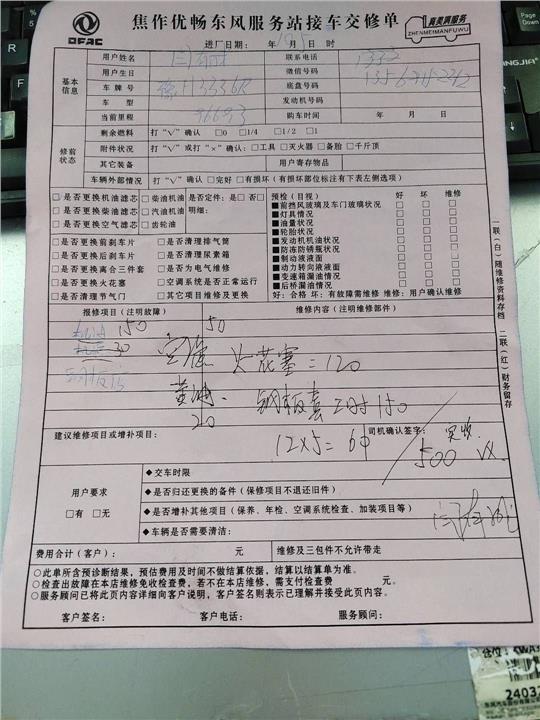 DFAC
焦作优畅东风服务站接车交修单
真美满服务
ZHENMEIMANFUWU
进厂日期: 年 月 5 日 时
基本信息
用户姓名
联系电话
用户生日
微信号码
车牌号
底盘号码
车型
发动机号码
当前里程
购车时间 年 月 日
修前状态
剩余燃料 打"√"确认 □0 □1/4 □1/2 □1
附件状况 打"√"或打"×"确认: □工具 □灭火器 □备胎 □千斤顶
其它装备 用户寄存物品
车辆外部情况 打"√"确认 □完好 □有损坏 (有损坏部位标注有下表左侧选项)
□是否更换机油滤芯 □柴油机油 □是否定件: 是 否
□是否更换柴油滤芯 □汽油机油 明细:
□是否更换空气滤芯 □齿轮油
□是否更换前刹车片 □是否清理排气筒
□是否更换后刹车片 □是否清理尿素箱
□是否更换离合三件套 □是否为电气维修
□是否更换火花塞 □空调系统是否正常运行
□是否清理节气门 □其它项目维修及更换
预检 (目视) 好 坏 维修
■前挡风玻璃及车门玻璃状况
■灯具情况
■油量状况
■轮胎状况
■发动机机油状况
■防冻防锈瓶状况
■制动液液面
■动力转向液液面
■变速箱漏油情况
■后桥漏油情况
好: 合格 坏: 有故障需维修 维修: 用户确认维修
报修项目 (注明故障) 维修内容 (注明维修部件)
150 50
30
空滤 火花塞=120
黄油、 钢板套 工时150
20
建议维修项目或增补项目: 司机确认签字:
12×5=60
500
实收
用户要求
□有 □无
◆交车时限
◆是否归还更换的备件 (保修项目不退还旧件)
◆是否增补其他项目 (保养、年检、空调系统检查、加装项目等)
◆车辆是否需要清洁:
费用合计 (客户): 元 维修及三包件不允许带走
○此单所含预诊断结果, 预估费用及时间不做结算依据, 结算以结算单为准。
○检查出故障在本店维修免收检查费, 若不在本店维修, 需支付检查费 元。
○服务顾问已将此页内容详细向客户说明, 客户签名则表示已理解并接受此页内容。
客户签名: 客户电话: 服务顾问:
一联 (白) 随维修资料存档 二联 (红) 财务留存